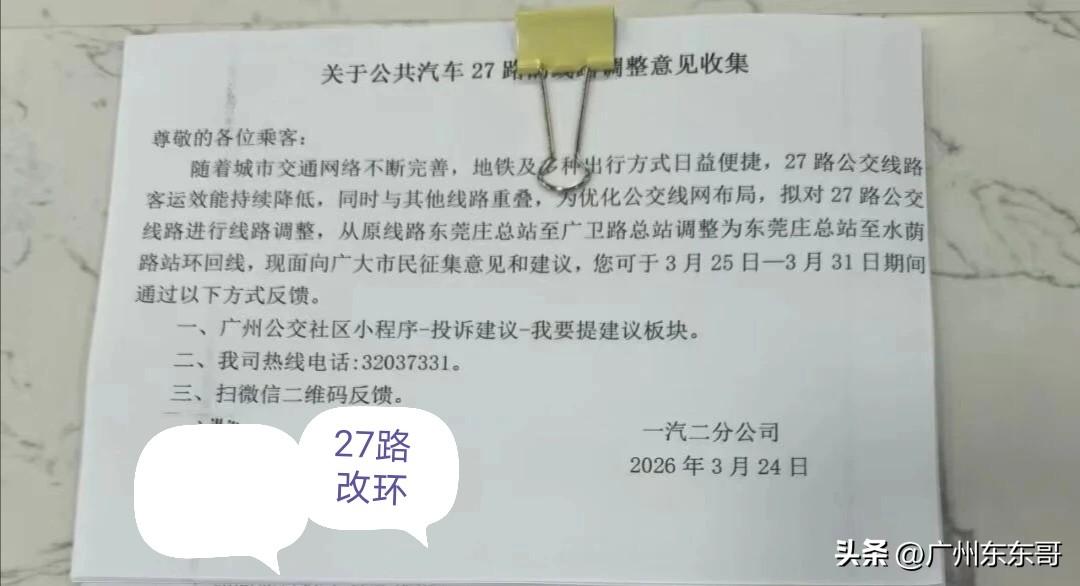 关于公共汽车27路 线路调整意见收集
尊敬的各位乘客：
随着城市交通网络不断完善，地铁及 种出行方式日益便捷，27路公交线路
客运效能持续降低，同时与其他线路重叠，为优化公交线网布局，拟对27路公交
线路进行线路调整，从原线路东莞庄总站至广卫路总站调整为东莞庄总站至水荫
路站环回线，现面向广大市民征集意见和建议，您可于3月25日—3月31日期间
通过以下方式反馈。
一、广州公交社区小程序-投诉建议-我要提建议板块。
二、我司热线电话:32037331。
三、扫微信二维码反馈。
一汽二分公司
2026年3月24日
27路
改环
头条 @广州东东哥